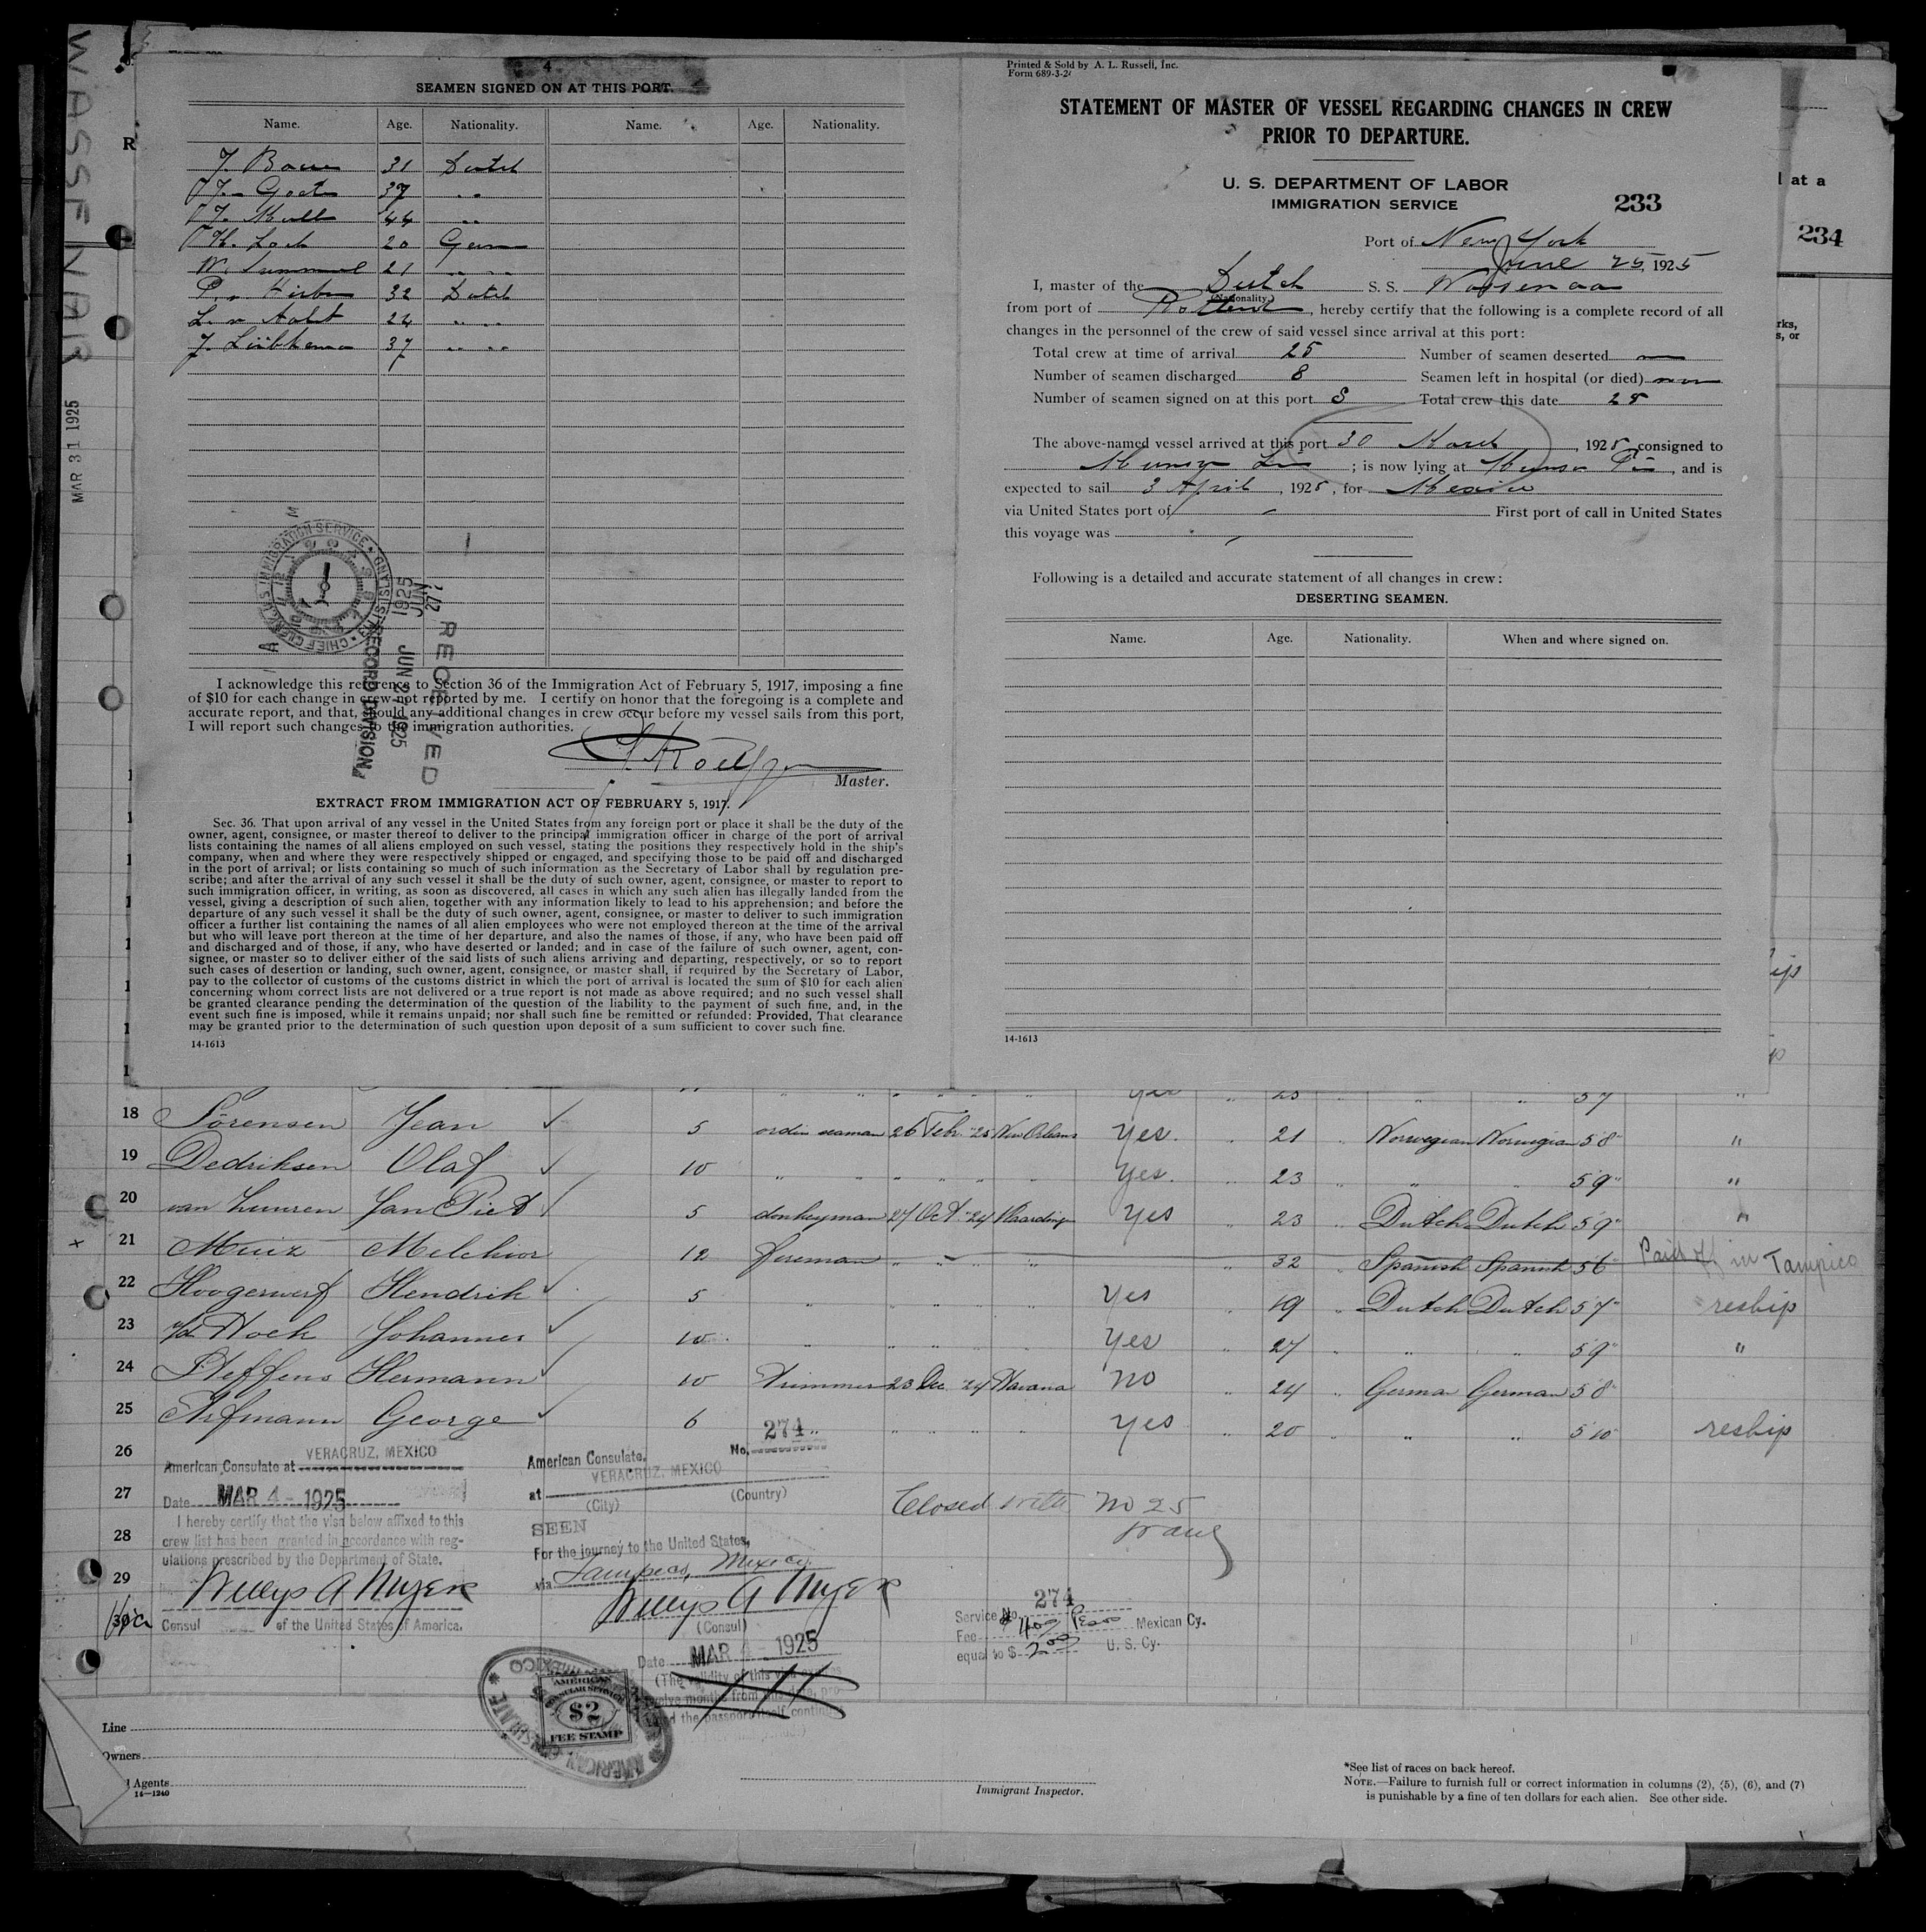 WASSENAAR
MAR 31 1925
4
SEAMEN SIGNED ON AT THIS PORT.
Name. Age. Nationality. Name. Age. Nationality.
31 Dutch
37 " "
44 " "
20 Germ
W. 21 " "
32 Dutch
24 " "
J. 37 " "
CHIEF CLERK U.S. IMMIGRATION SERVICE
JUN 27 1925
RECEIVED
JUN 27 1925
RECORD DIVISION
I acknowledge this reference to Section 36 of the Immigration Act of February 5, 1917, imposing a fine
of $10 for each change in crew not reported by me. I certify on honor that the foregoing is a complete and
accurate report, and that, should any additional changes in crew occur before my vessel sails from this port,
I will report such changes to the immigration authorities.
Master.
EXTRACT FROM IMMIGRATION ACT OF FEBRUARY 5, 1917.
Sec. 36. That upon arrival of any vessel in the United States from any foreign port or place it shall be the duty of the
owner, agent, consignee, or master thereof to deliver to the principal immigration officer in charge of the port of arrival
lists containing the names of all aliens employed on such vessel, stating the positions they respectively hold in the ship's
company, when and where they were respectively shipped or engaged, and specifying those to be paid off and discharged
in the port of arrival; or lists containing so much of such information as the Secretary of Labor shall by regulation pre-
scribe; and after the arrival of any such vessel it shall be the duty of such owner, agent, consignee, or master to report to
such immigration officer, in writing, as soon as discovered, all cases in which any such alien has illegally landed from the
vessel, giving a description of such alien, together with any information likely to lead to his apprehension; and before the
departure of any such vessel it shall be the duty of such owner, agent, consignee, or master to deliver to such immigration
officer a further list containing the names of all alien employees who were not employed thereon at the time of the arrival
but who will leave port thereon at the time of her departure, and also the names of those, if any, who have been paid off
and discharged and of those, if any, who have deserted or landed; and in case of the failure of such owner, agent, con-
signee, or master so to deliver either of the said lists of such aliens arriving and departing, respectively, or so to report
such cases of desertion or landing, such owner, agent, consignee, or master shall, if required by the Secretary of Labor,
pay to the collector of customs of the customs district in which the port of arrival is located the sum of $10 for each alien
concerning whom correct lists are not delivered or a true report is not made as above required; and no such vessel shall
be granted clearance pending the determination of the question of the liability to the payment of such fine, and, in the
event such fine is imposed, while it remains unpaid; nor shall such fine be remitted or refunded: Provided, That clearance
may be granted prior to the determination of such question upon deposit of a sum sufficient to cover such fine.
14-1613
Printed & Sold by A. L. Russell, Inc.
Form 689-3-2
STATEMENT OF MASTER OF VESSEL REGARDING CHANGES IN CREW
PRIOR TO DEPARTURE.
U. S. DEPARTMENT OF LABOR
IMMIGRATION SERVICE
233
Port of New York
June 25, 1925
I, master of the Dutch S. S. Wassenaar
(Nationality.)
from port of , hereby certify that the following is a complete record of all
changes in the personnel of the crew of said vessel since arrival at this port:
Total crew at time of arrival 25 Number of seamen deserted
Number of seamen discharged 8 Seamen left in hospital (or died)
Number of seamen signed on at this port 8 Total crew this date 25
The above-named vessel arrived at this port 30 March, 1925 consigned to
Munson Line; is now lying at Munson Pier, and is
expected to sail 3 April, 1925, for Mexico
via United States port of First port of call in United States
this voyage was
Following is a detailed and accurate statement of all changes in crew:
DESERTING SEAMEN.
Name. Age. Nationality. When and where signed on.
14-1613
l at a
234
rks,
s, or
18 Sörensen Jean ✓ 5 ordin seaman 26 Febr. "25 New Orleans Yes. " 21 " Norwegian Norwegian 5 8" "
19 Dedriksen Olaf ✓ 10 " " " " " Yes. " 23 " " " 5 9" "
20 van Jan Piet ✓ 5 donkeyman 27 Oct. "24 Yes " 23 " Dutch Dutch 5 9" "
x 21 Muiz Melchior 12 fireman " " " " 32 " Spanish Spanish 5 6 Paid off in Tampico
22 Hoogerwerf Hendrik ✓ 5 " " " " Yes " 19 " Dutch Dutch 5 7" reship
23 v/d Hoek Johannes ✓ 10 " " " " Yes " 27 " " " 5 9" "
24 Steffens Hermann ✓ 10 Trimmer 23 Dec "24 Havana No " 24 " German German 5 8"
25 George ✓ 6 " " " " " Yes " 20 " " " 5 10 reship
26
27
28
29
30
American Consulate at VERACRUZ, MEXICO
Date MAR 4 - 1925
I hereby certify that the visa below affixed to this
crew list has been granted in accordance with reg-
ulations prescribed by the Department of State.
Willys A Myers
Consul of the United States of America.
274
American Consulate, No.
VERACRUZ, MEXICO
at
(City) (Country)
SEEN
For the journey to the United States,
via Tampico, Mexico.
Willys A Myers
(Consul)
Date MAR 4 - 1925
(The validity of this visa
twelve months from this date, pro-
vided the passport itself continues
Closed with No 25
274
Service No.
Fee $ 4.00 Pesos Mexican Cy.
equal to $ 2.00 U. S. Cy.
AMERICAN CONSULATE
AMERICAN
CONSULAR SERVICE
$2
FEE STAMP
Line
Owners
l Agents
14—1240
Immigrant Inspector.
*See list of races on back hereof.
NOTE.—Failure to furnish full or correct information in columns (2), (5), (6), and (7)
is punishable by a fine of ten dollars for each alien. See other side.